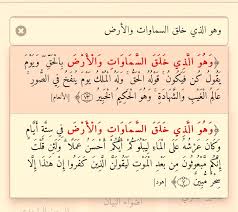 وهو الذي خلق السماوات والأرض
﴿وَهُوَ الَّذِي خَلَقَ السَّمَاوَاتِ وَالْأَرْضَ بِالْحَقِّ ۖ وَيَوْمَ
يَقُولُ كُن فَيَكُونُ ۚ قَوْلُهُ الْحَقُّ ۚ وَلَهُ الْمُلْكُ يَوْمَ يُنفَخُ فِي الصُّورِ ۚ
عَالِمُ الْغَيْبِ وَالشَّهَادَةِ ۚ وَهُوَ الْحَكِيمُ الْخَبِيرُ ﴿٧٣﴾﴾ [الأنعام]
﴿وَهُوَ الَّذِي خَلَقَ السَّمَاوَاتِ وَالْأَرْضَ فِي سِتَّةِ أَيَّامٍ
وَكَانَ عَرْشُهُ عَلَى الْمَاءِ لِيَبْلُوَكُمْ أَيُّكُمْ أَحْسَنُ عَمَلًا ۗ وَلَئِن قُلْتَ
إِنَّكُم مَّبْعُوثُونَ مِن بَعْدِ الْمَوْتِ لَيَقُولَنَّ الَّذِينَ كَفَرُوا إِنْ هَٰذَا إِلَّا
سِحْرٌ مُّبِينٌ ﴿٧﴾﴾ [هود]
أضواء البيان